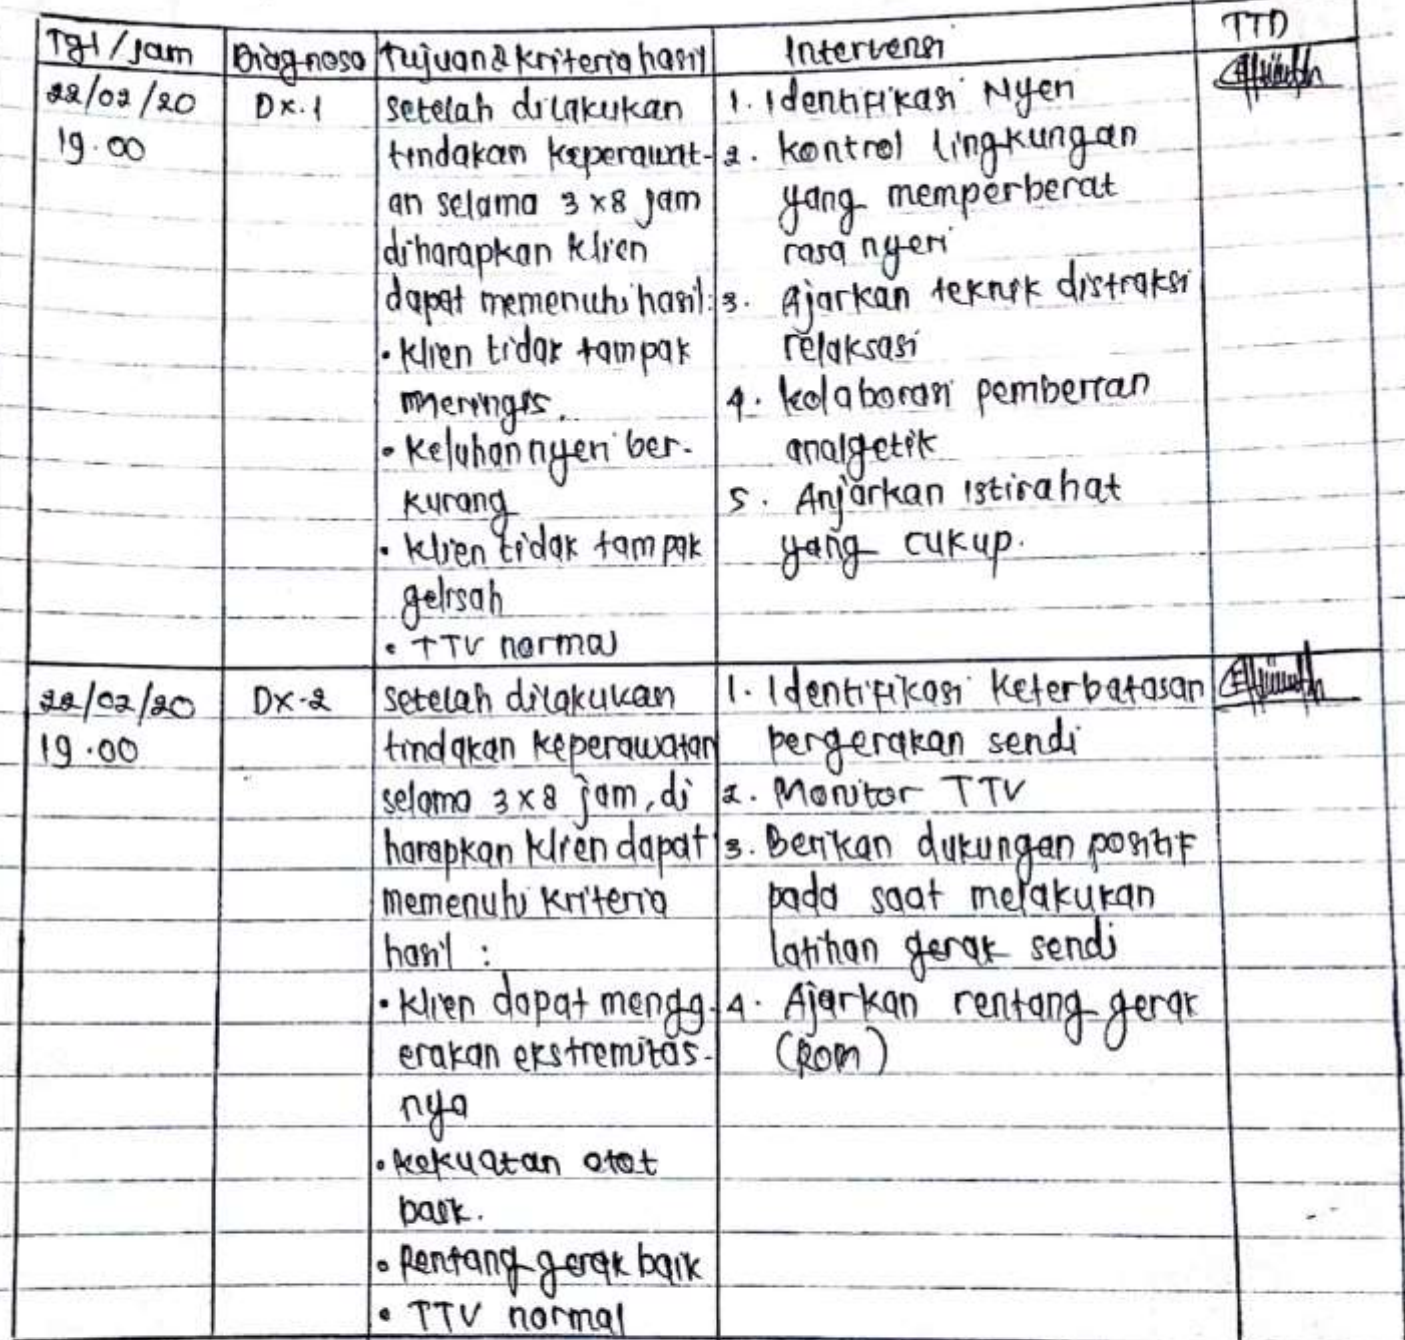 Tgl / jam
Diagnosa
Tujuan & kriteria hasil
Intervensi
TTD
22/02/20
19.00
Dx.1
setelah dilakukan
tindakan keperawat-
an selama 3 x 8 jam
diharapkan klien
dapat memenuhi hasil:
• klien tidak tampak
meringis.
• Keluhan nyeri ber-
kurang
• klien tidak tampak
gelisah
• TTV normal
1. Identifikasi Nyeri
2. kontrol lingkungan
yang memperberat
rasa nyeri
3. Ajarkan teknik distraksi
relaksasi
4. kolaborasi pemberian
analgetik
5. Anjarkan istirahat
yang cukup.
22/02/20
19.00
Dx-2
setelah dilakukan
tindakan keperawatan
selama 3 x 8 jam, di
harapkan klien dapat
memenuhi kriteria
hasil :
• klien dapat mengg-
erakan ekstremitas-
nya
• kekuatan otot
baik.
• Rentang gerak baik
• TTV normal
1. Identifikasi keterbatasan
pergerakan sendi
2. Monitor TTV
3. Berikan dukungan positif
pada saat melakukan
latihan gerak sendi
4. Ajarkan rentang gerak
(ROM)